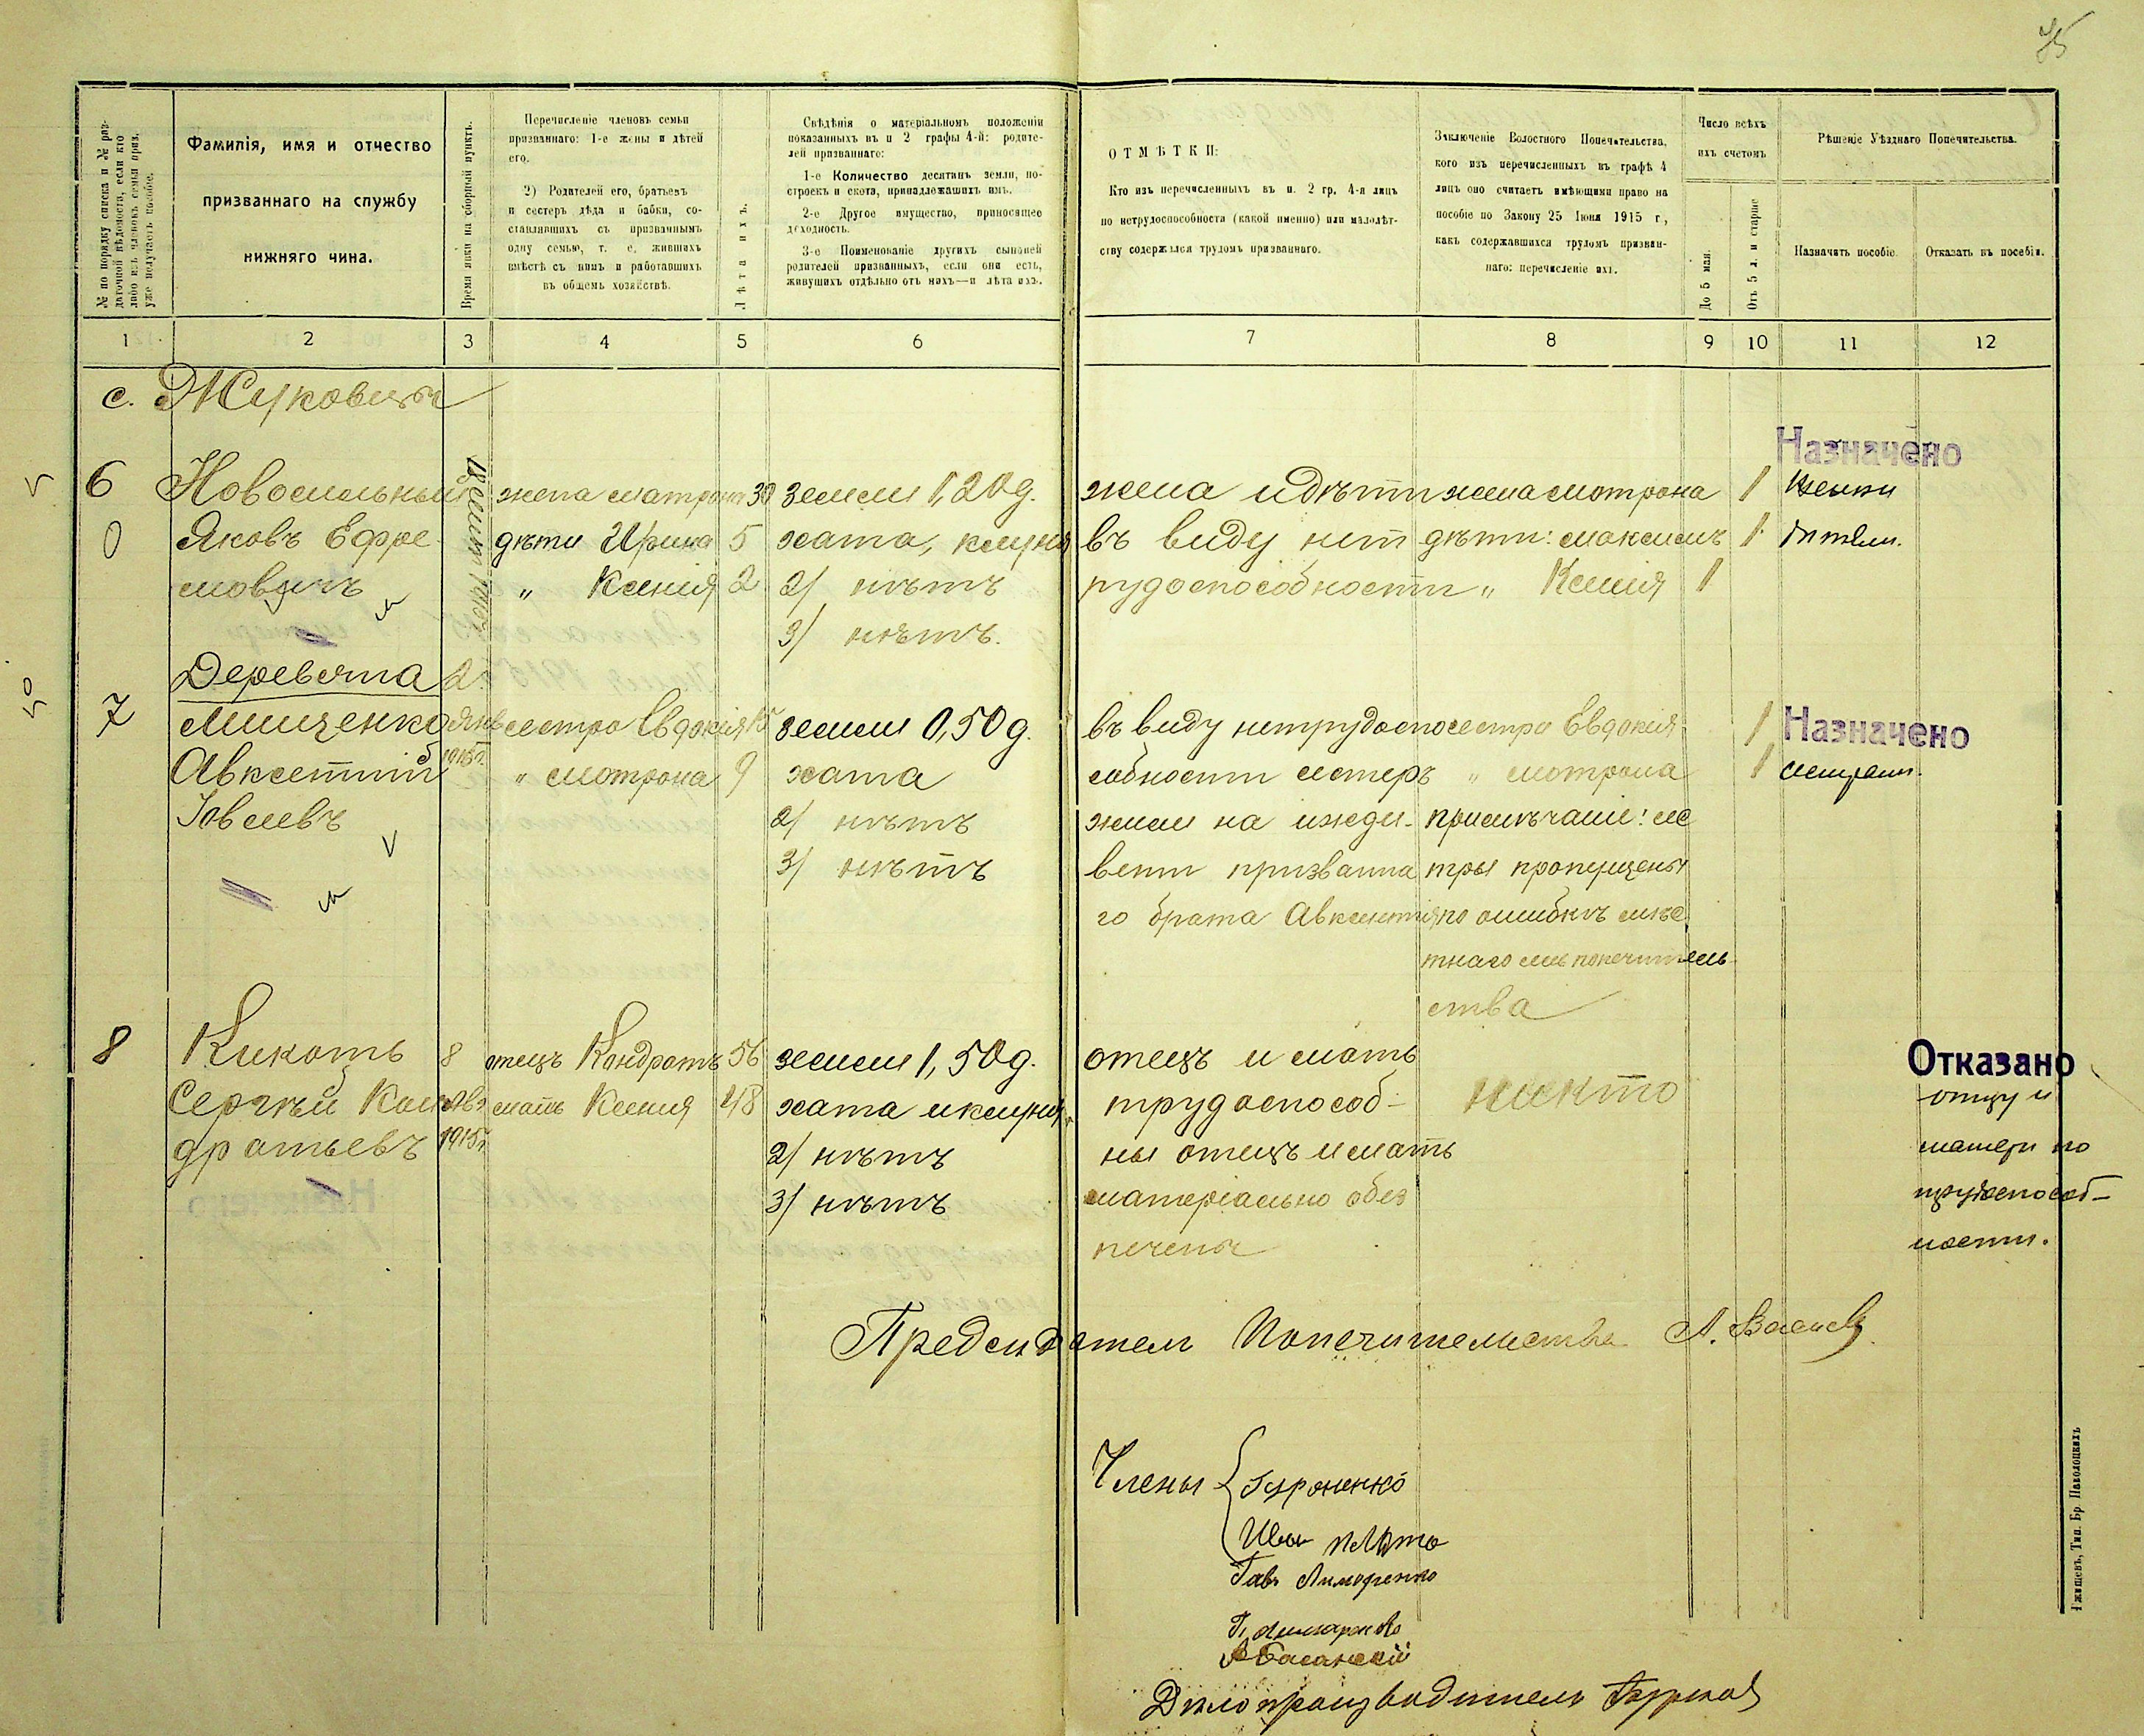 № по порядку списка и № раз-
даточной вѣдомости, если кто
либо изъ членовъ семьи приз.
уже получаетъ пособіе.
Фамилія, имя и отчество
призваннаго на службу
нижняго чина.
Время явки на сборный пунктъ.
Перечисленіе членовъ семьи
призваннаго: 1-е жены и дѣтей
его.
2) Родителей его, братьевъ
и сестеръ дѣда и бабки, со-
ставлявшихъ съ призваннымъ
одну семью, т. е. жившихъ
вмѣстѣ съ нимъ и работавшихъ
въ общемъ хозяйствѣ.
Лѣта ихъ.
Свѣдѣнія о матеріальномъ положеніи
показанныхъ въ п 2 графы 4-й: родите-
лей призваннаго:
1-е Количество десятинъ земли, по-
строекъ и скота, принадлежащихъ имъ.
2-е Другое имущество, приносящее
доходность.
3-е Поименованіе другихъ сыновей
родителей призванныхъ, если они есть,
живущихъ отдѣльно отъ нихъ—и лѣта ихъ.
ОТМѢТКИ:
Кто изъ перечисленныхъ въ п. 2 гр. 4-я лицъ
по нетрудоспособности (какой именно) или малолѣт-
ству содержался трудомъ призваннаго.
Заключеніе Волостного Попечительства,
кого изъ перечисленныхъ въ графѣ 4
лицъ оно считаетъ имѣющими право на
пособіе по Закону 25 Іюня 1915 г.,
какъ содержавшихся трудомъ призван-
наго: перечисленіе ихъ.
Число всѣхъ
ихъ счетомъ
До 5 мая.
Отъ 5 л. и старше
Рѣшеніе Уѣзднаго Попечительства.
Назначить пособіе.
Отказать въ пособіи.
1 2 3 4 5 6 7 8 9 10 11 12
с. Жуковцы
Назначено
6 Новосильный жена Матрона 30 земли 1,20 д. жена и дѣти жена Мотрона 1 жены
0 Яковъ Ефре- дѣти Ирина 5 хата, клуня въ виду нет дѣти: Максимъ 1 дѣтям.
мовичъ „ Ксенія 2 2/ нѣтъ рудоспособности „ Ксенія 1
1915 г.
3/ нѣтъ.
Деревяна 2
7 Мищенко Янв сестра Евдокія 15 земли 0,50 д. въ виду нетрудоспо сестра Евдокія 1 Назначено
Авксетній 1915 г. „ Мотрона 9 хата собности сестеръ „ Мотрона 1 сестрам.
Іовлевъ 2/ нѣтъ жили на ижди- примѣчаніе: сес
3/ нѣтъ вени призванна тры пропущены
го брата Авксентія по ошибкѣ мѣс
тнаго попечитель-
ства
8 Кикоть 8 отецъ Кондратъ 56 земли 1,50 д. отецъ и мать Отказано
Сергѣй Кон- Авг мать Ксенія 48 хата и клуня трудоспособ- никто отцу и
дратьевъ 1915 г. 2/ нѣтъ ны отецъ и мать матери по
3/ нѣтъ матеріально обез трудоспособ-
печены ности.
Председатель Попечительства
Члены
Дѣлопроизводитель
Ржищевъ, Тип. Бр Паволоцкихъ